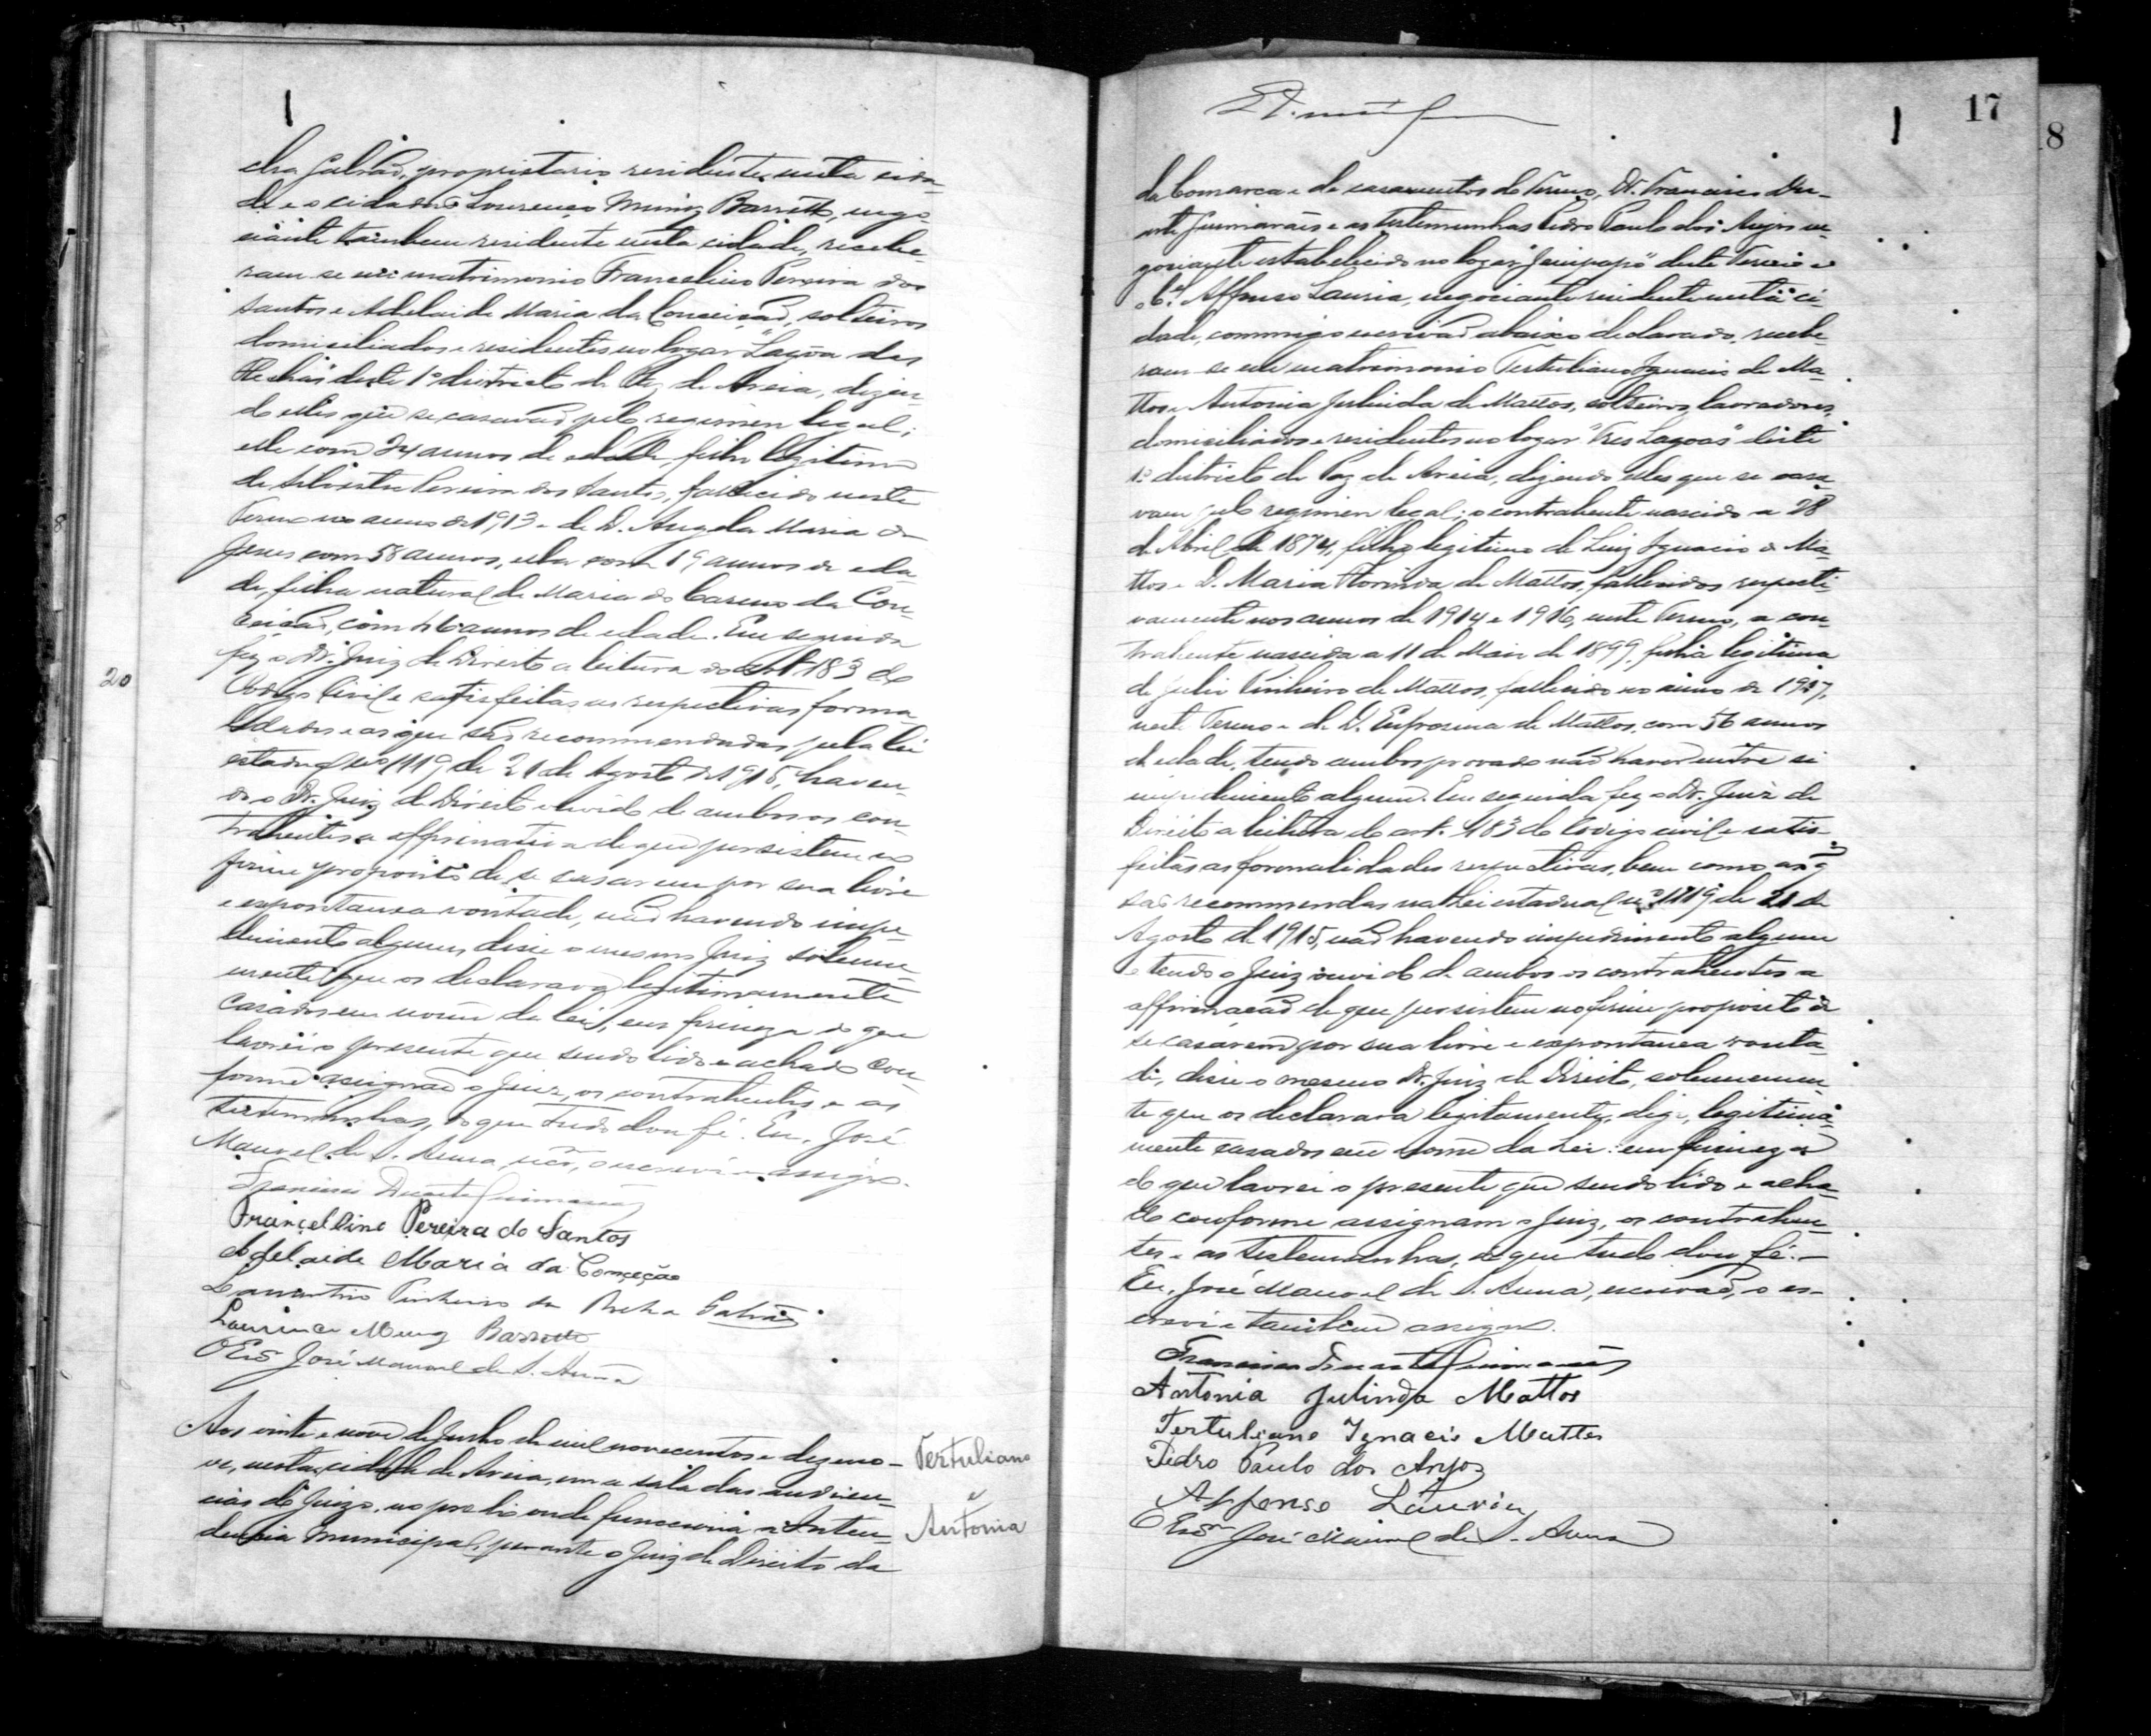 dra Galvão, proprietario residentes nesta cida-
de e o cidadão Lourenço Muniz Barretto, nego-
ciante tambem residente nesta cidade, recebe-
ram-se em matrimonio Francelino Pereira dos
Santos e Adelaide Maria da Conceição, solteiros
domiciliados e residentes no logar "Lagôa das
deste 1º districto de Paz de Areia, dizen-
do elles que se casavão pelo regimen legal;
elle com 24 annos de edade, filho legitimo
de Silvestre Pereira dos Santos, fallecido neste
Termo no anno de 1913 e de D. Angela Maria de
Jesus com 58 annos, ella com 19 annos de eda-
de, filha natural de Maria do Carmo da Con-
ceição, com 46 annos de edade. Em seguida
fez o Dr. Juiz de Direito a leitura do art. 183 do
20
Codigo Civil e satisfeitas as respectivas forma-
lidades e as que são recommendadas pela lei
estadual nº 1119 de 21 de Agosto de 1915, haven-
do o Dr. Juiz de Direito ouvido de ambos os con-
trahentes a affirmativa de que persistem no
firme proposito de se casarem por sua livre
e expontanea vontade, não havendo impe-
dimento algum, disse o mesmo Juiz solemne-
mente que os declarava legitimamente
casados em nome da Lei, em firmeza do que
lavrei o presente que sendo lido e achado con-
forme assignão o Juiz, os contrahentes e as
testemunhas, do que tudo dou fé. Eu, José
Manoel de S. Anna, escrevi e assigno.
Francisco Duarte Guimarães
Francellino Pereira do Santos
Adelaide Maria da Conceção
Pinheiro da Galvão
Lourenço Muniz Barretto
O Esc. José Manoel de S. Anna
Aos vinte e nove de Junho de mil novecentos e dezeno-
ve, nesta cidade de Areia, em a sala das audien-
cias do Juizo, no predio onde funcciona a Inten-
dencia Municipal, perante o Juiz de Direito da
Tertuliano
e
Antonia
17
18
da Comarca e de casamentos do Termo, Dr. Francisco Du-
arte Guimarães e as testemunhas Pedro Paulo dos Anjos ne-
gociante estabelecido no logar "Genipapo" deste Termo e
Affonso Lauria, negociante residente nesta ci-
dade, commigo escrivão abaixo declarado, recebe-
ram-se em matrimonio Tertuliano Ignacio de Ma-
ttos e Antonia Julinda de Mattos, solteiros, lavradores,
domiciliados e residentes no logar "Tres Lagoas" deste
1º districto de Paz de Areia, dizendo elles que se casa-
vam pelo regimen legal; o contrahente nascido a 28
de Abril de 1874, filho legitimo de Luiz Ignacio de Ma-
ttos e D. Maria Florinda de Mattos, fallecidos respecti-
vamente nos annos de 1914 e 1916, neste Termo, a con-
trahente nascida a 11 de Maio de 1899, filha legitima
de Julio Pinheiro de Mattos, fallecido no anno de 1917,
neste Termo e de D. Eufrosina de Mattos, com 56 annos
de edade, tendo ambos provado não haver entre si
impedimento algum. Em seguida fez o Dr. Juiz de
Direito a leitura do art. 183 do Codigo civil e satis-
feitas as formalidades respectivas, bem como as q
são recommendas na Lei estadual nº 1119 de 21 de
Agosto de 1915, não havendo impedimento algum
e tendo o Juiz ouvido de ambos os contrahentes a
affirmação de que persistem no firme proposito de
se casárem por sua livre e expontanea vonta-
de, disse o mesmo Dr. Juiz de Direito, solemnemen-
te que os declarava legitamente, digo, legitima-
mente casados em nome da Lei: em firmeza
do que lavrei o presente que sendo lido e acha-
do conforme assignam o Juiz, os contrahen-
tes e as testemunhas, do que tudo dou fé.—
Eu, José Manoel de S. Anna, escrivão, o es-
crevi e tambem assigno.
Francisco Duarte Guimarães
Antonia Julinda Mattos
Tertuliano Ignacio Mattos
Pedro Paulo dos Anjos
Affonso Lauria
O Escm José Manoel de S. Anna